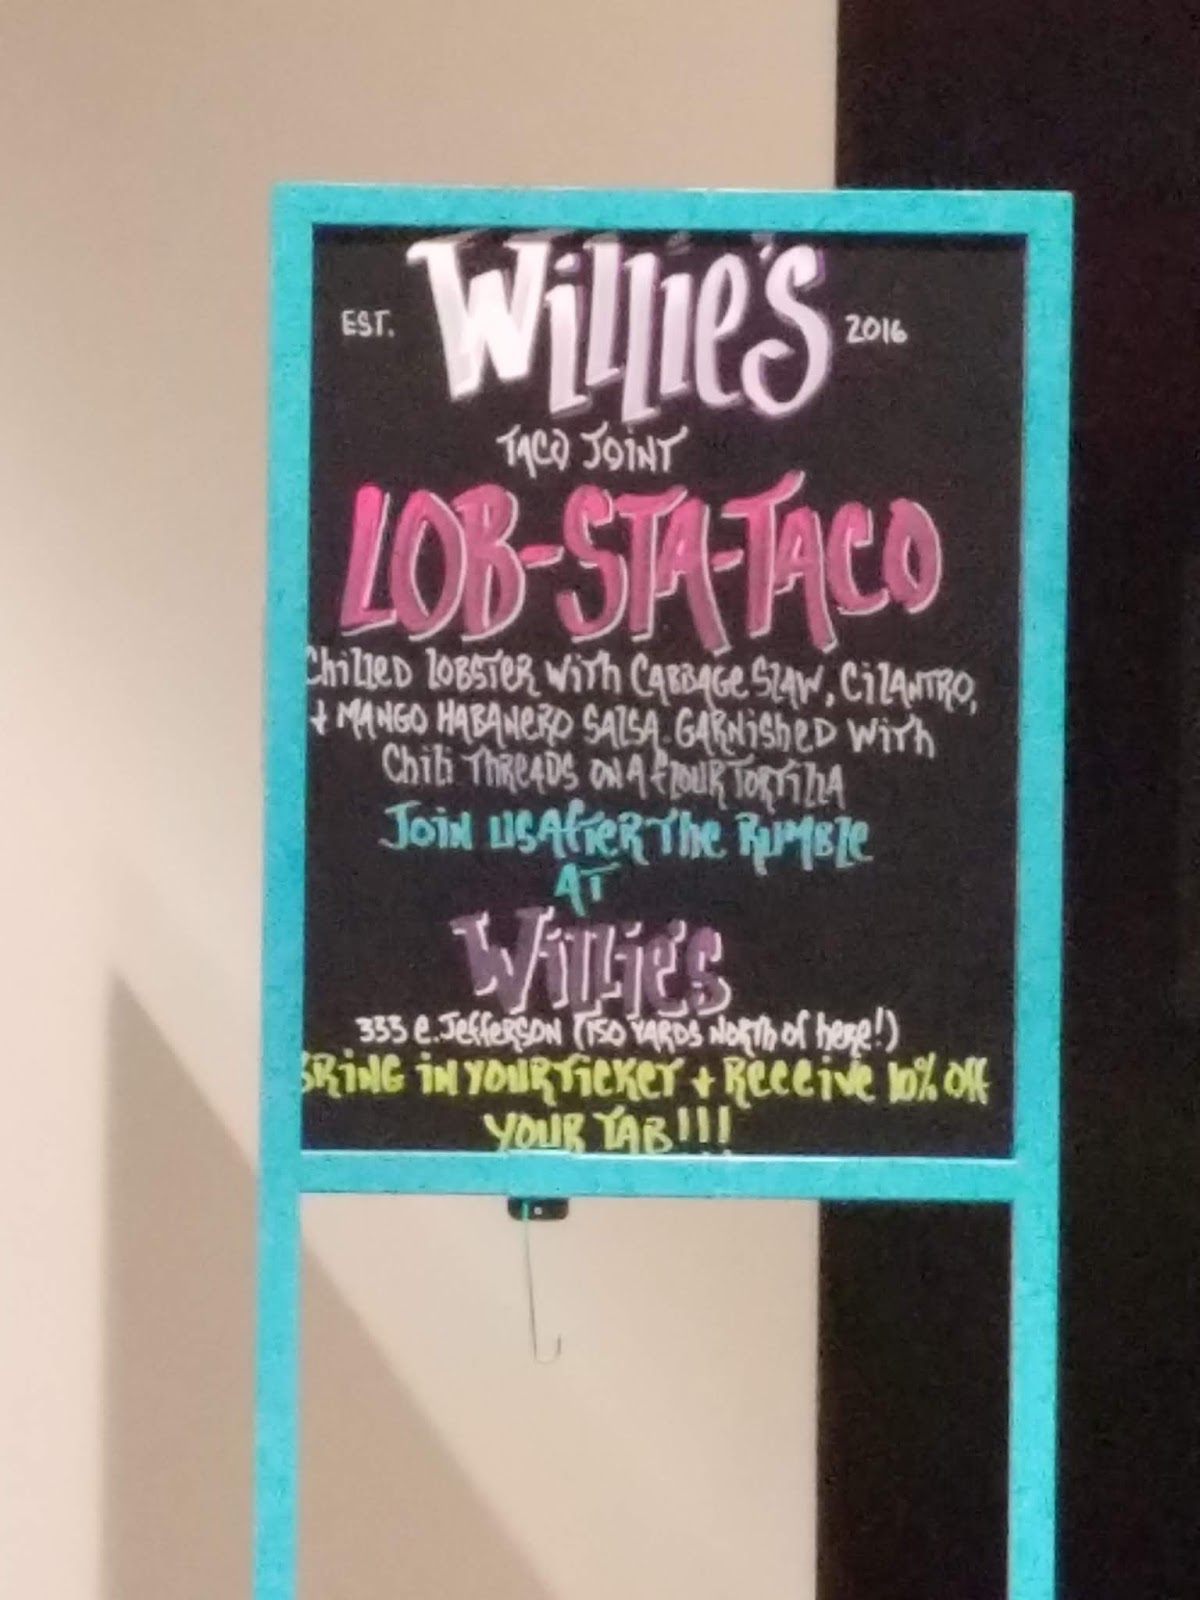 EST. Willie's 2016
TACO JOINT
LOB-STA-TACO
Chilled LOBSTER with CABBAGE SLAW, CILANTRO,
+ MANGO HABANERO SALSA. GARNISHED with
Chili THREADS ON A flour TORTILLA
Join us After The RUMBLE
AT
Willie's
333 e. Jefferson (150 YARDS NORTH of here!)
BRING in YOUR TICKET + Receive 10% Off
YOUR TAB!!!